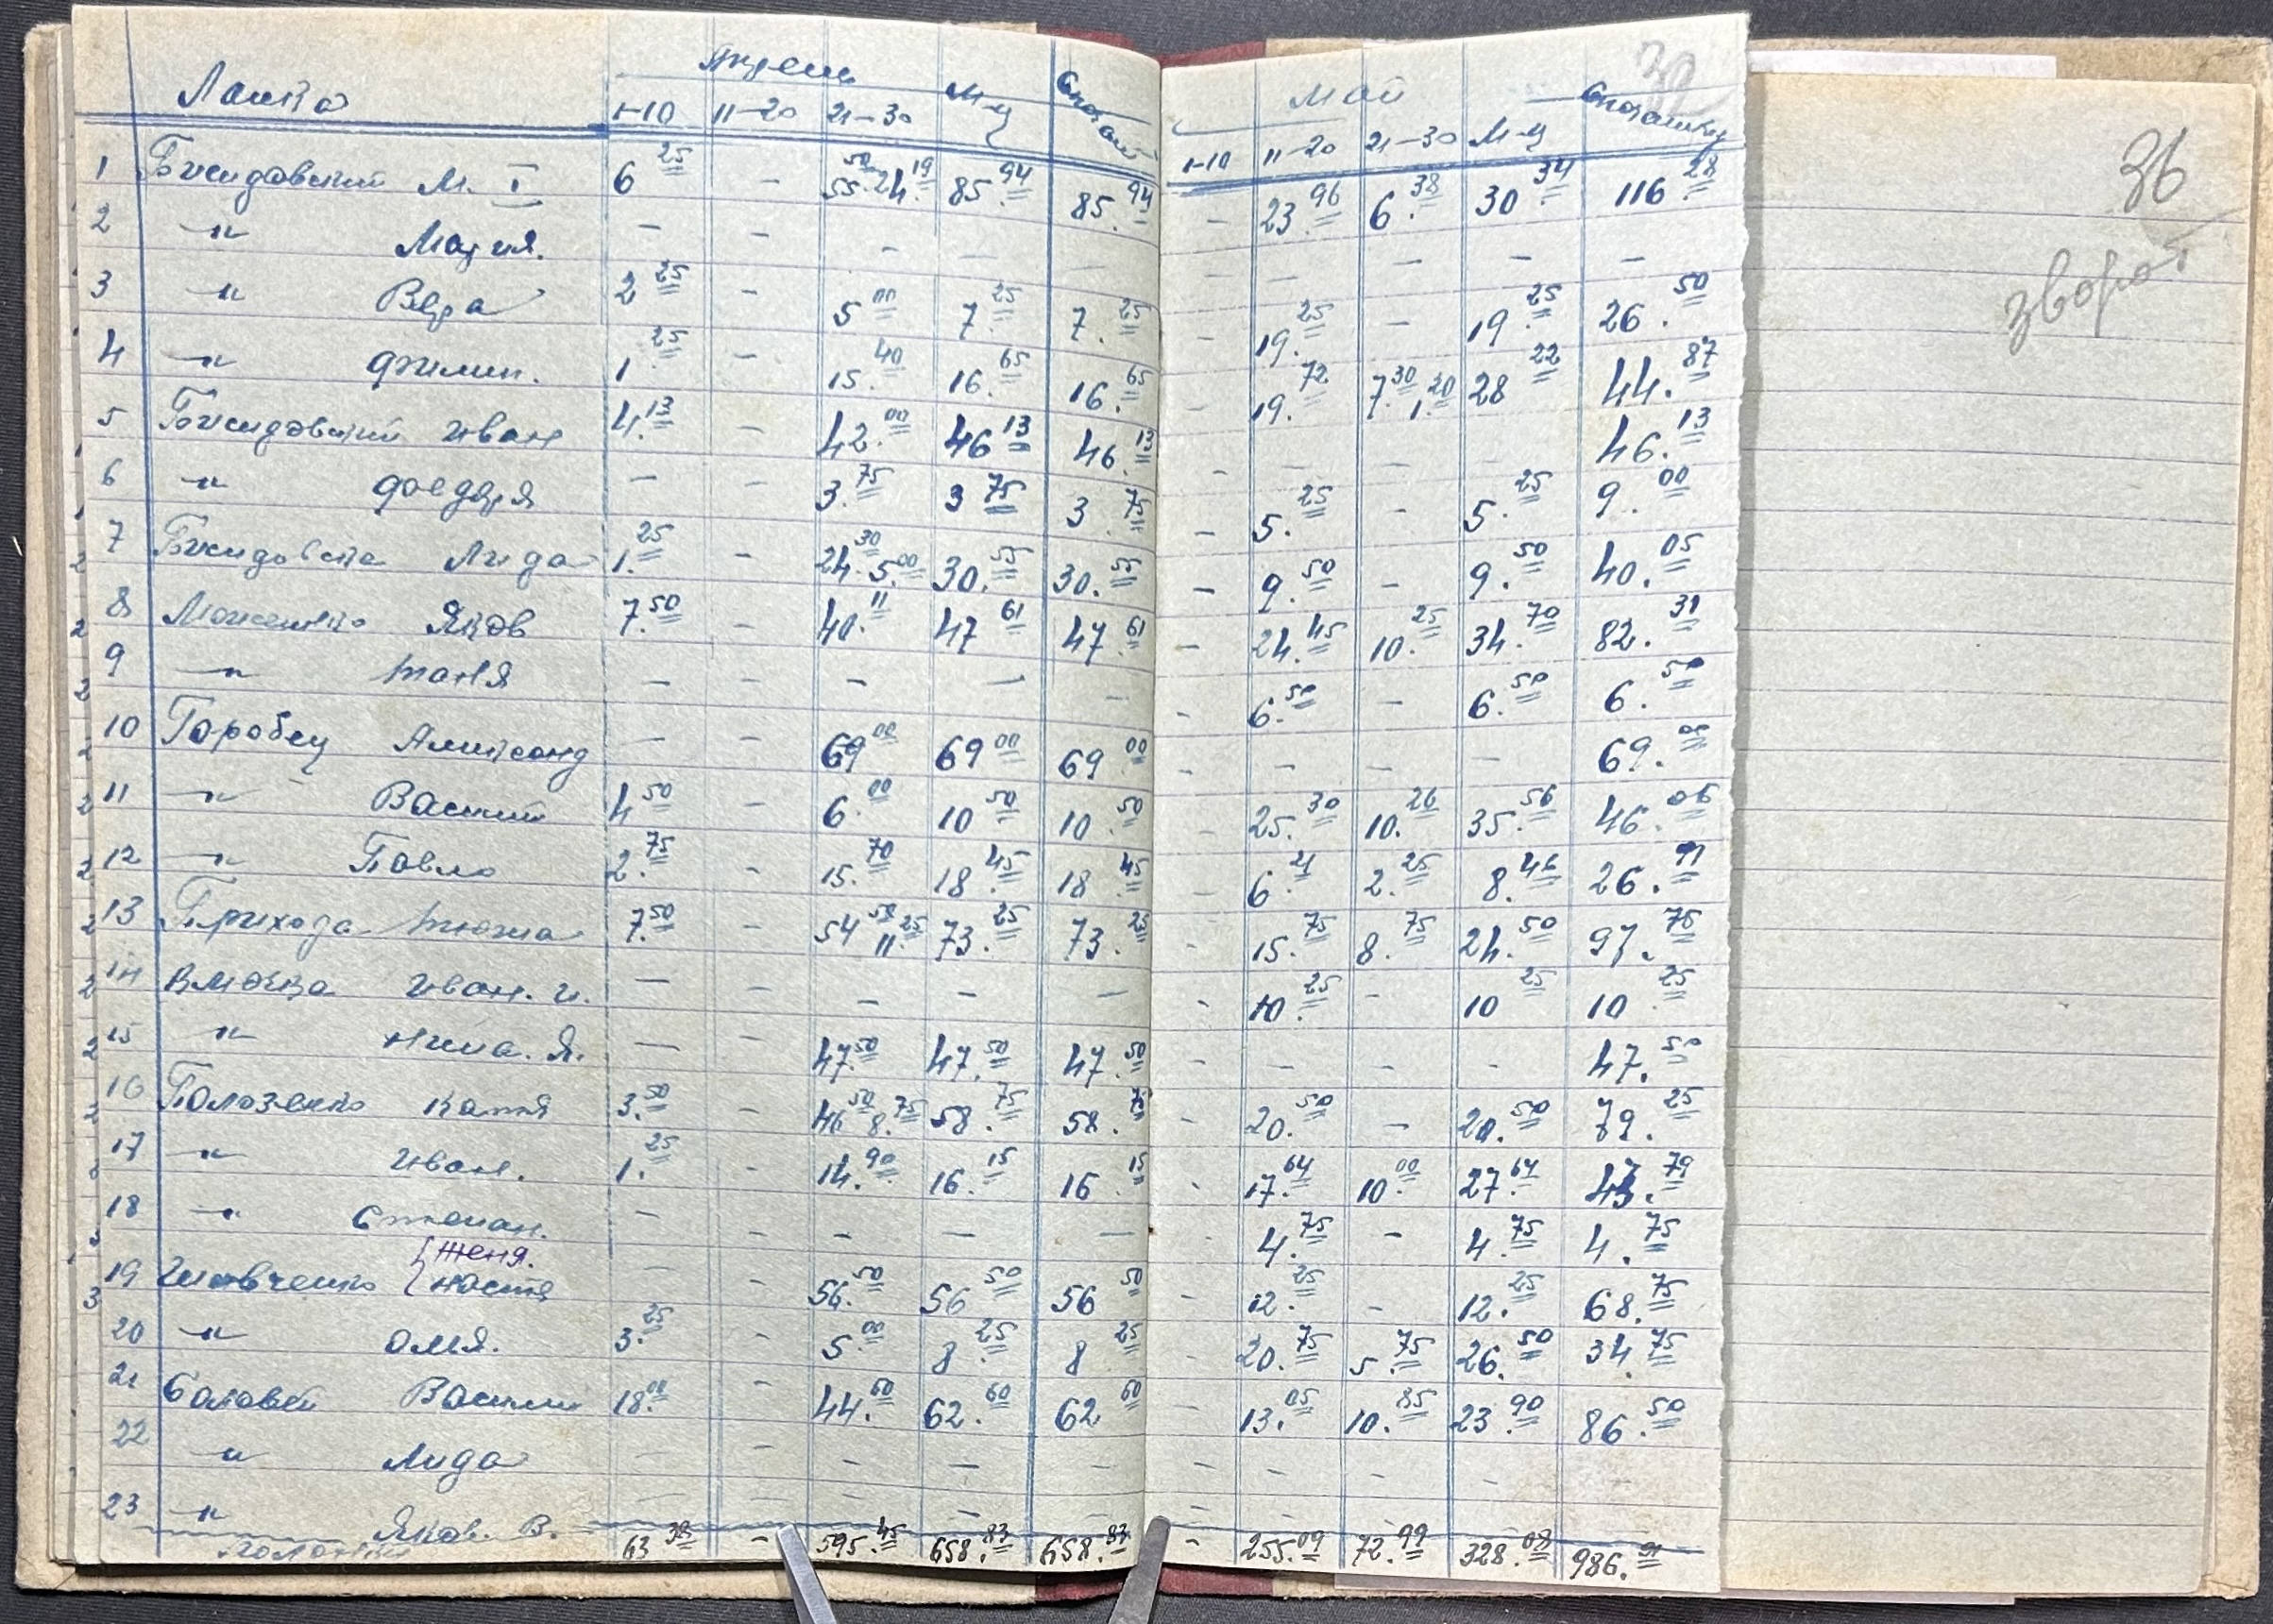 Ланка Апрель М-ц Май 32
1-10 11-20 21-30 1-10 11-20 21-30 М-ц
36
зворот
1 М. I 6 25 - 55.50 24.19 85.94 85.94 - 23.96 6.38 30.34 116.28
2 -"- Мария. - - - - - - -
3 -"- Вера 2 25 - 5 00 7.25 7.25 - 19.25 - 19.25 26.50
4 -"- Филип. 1.25 - 15.40 16.65 16.65 - 19.72 7.30 1.20 28 22 44.87
5 Иван 4.13 - 42.00 46 13 46.13 - - - - 46.13
6 -"- - - 3.75 3 75 3.75 - 5.25 - 5.25 9.00
7 Лида 1.25 - 24.30 5.00 30.55 30.55 - 9.50 - 9.50 40.05
8 Яков 7.50 - 40.11 47 61 47.61 - 24.45 10.25 34.70 82.31
9 -"- Таня - - - - - - 6.50 - 6.50 6.50
10 Горобец - - 69 00 69 00 69 00 - - - - 69.00
11 -"- Василий 4 50 - 6.00 10 50 10.50 - 25.30 10.26 35.56 46.06
12 -"- Павло 2.75 - 15.70 18.45 18.45 - 6.21 2.25 8.46 26.91
13 Прихода 7.50 - 54 50 11 25 73.25 73.25 - 15.75 8.75 24.50 97.75
14 Иван. И. - - - - - - 10.25 - 10 25 10 25
15 -"- Нина. Я. - - 47 50 47.50 47.50 - - - - 47.50
16 Полозенко Катя 3.50 - 46 50 8.75 58.75 58.75 - 20.50 - 20.50 79.25
17 -"- Иван. 1.25 - 14.90 16.15 16.15 - 17.64 10 00 27 64 43.79
18 -"- Степан. - - - - - 4.75 - 4.75 4.75
Женя.
19 Настя - - 56.50 56 50 56 50 - 12.25 - 12.25 68.75
20 -"- Оля. 3.25 - 5.00 8.25 8 25 - 20.75 5.75 26.50 34.75
21 Соловей Василий 18.00 - 44.60 62.60 62 60 - 13.05 10.85 23 90 86.50
22 -"- Лида - - - - - - - - -
23 -"- Яков. В. - - - - - -
63 38 - 595.45 658.83 658.83 - 255.09 72.99 328.08 986.91